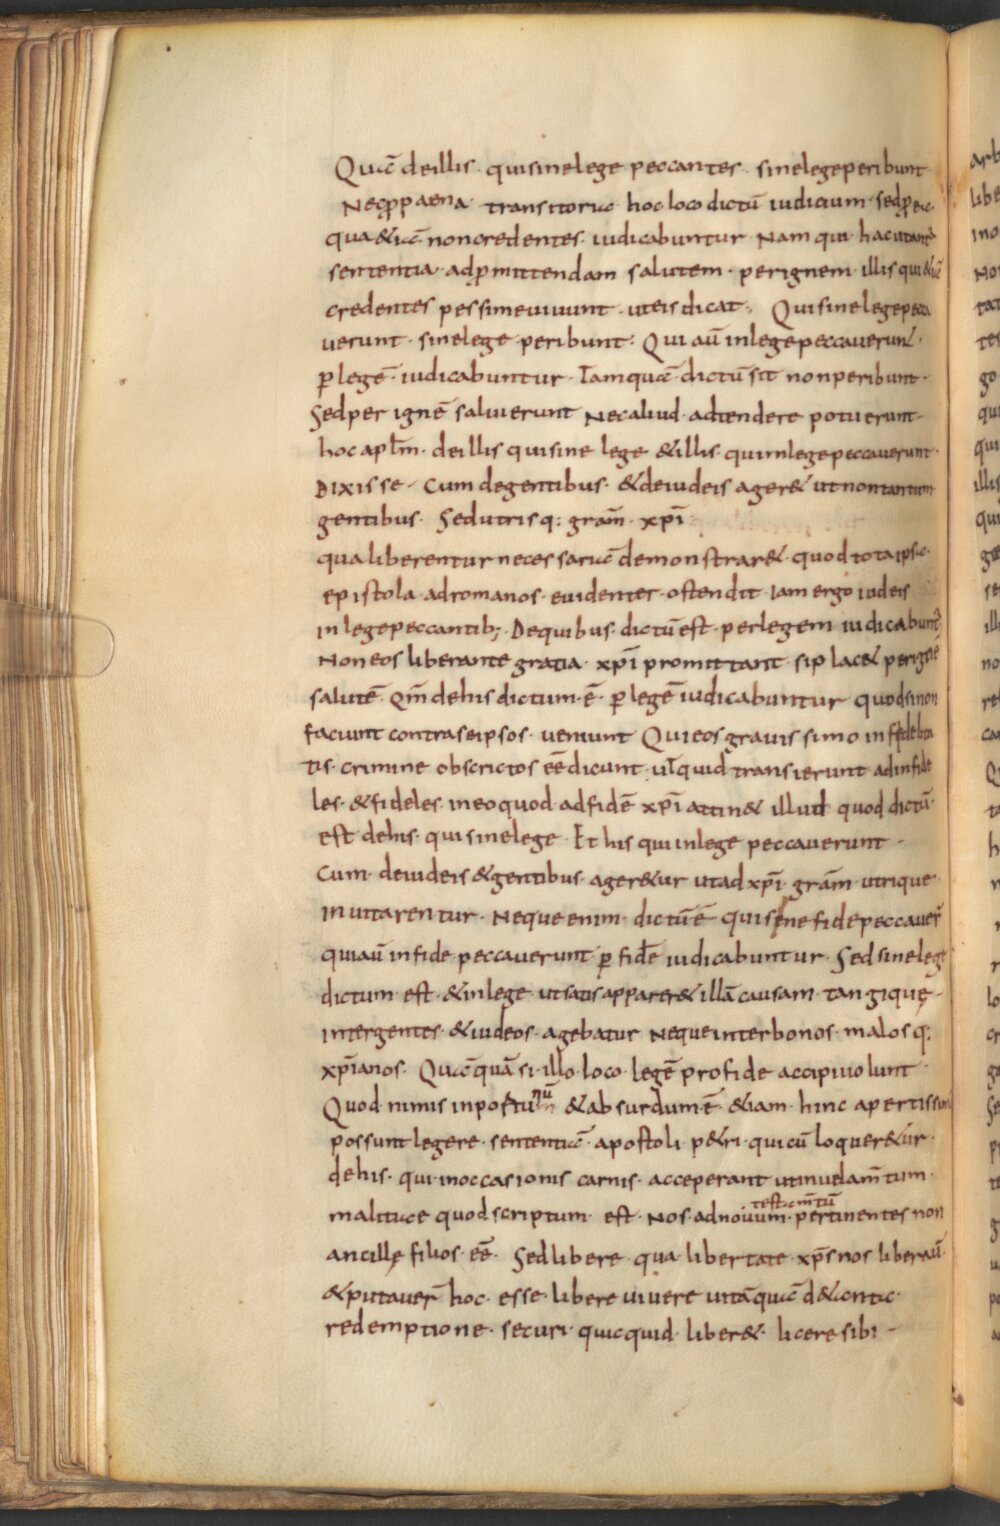 Quā deillis · quisinelege peccantes · sinelegeperibunt
Necp̱ppaena · transitoria hoc loco dictū iudicium · sedp̱ea
qua&iā noncredentes · iudicabuntur Nam qui hacutant̄
sententia · adp̱mittendam salutem · perignem · illis qui &iā
credentes pessimeuiuunt · uteis dicat · Quisinelegepecca
uerunt · sinelege peribunt · Qui aū inlegepeccauerunt ·
p̱legē · iudicabuntur · Tamquā dictū sit nonperibunt ·
Sedper ignē saluierunt Necaliud · adtendere potuerunt
hoc apl̄m · deillis quisine lege &illis · quiinlegepeccauerunt ·
Dixisse · Cum degentibus · &deiudeis ager& utnontantum
gentibus · Sedutrisq: gram̄ · xp̄i
qualiberentur necessariā demonstrar& · quod totaipsa
epistola · adromanos · euidenter · ostendit · Iam ergo iudeis
inlegepeccantib; · Dequibus · dictū est · perlegem iudicabunt̄
Noneos liberante gratia · xp̄i promittant · siplac& perignē
salutē · qm̄ dehis dictum · ē · p̱legē iudicabuntur quodsinon
faciunt contraseipsos · ueniunt Quieos grauissimo infidelita
tis · crimine obstrictos eē dicunt · ut quid transierunt adinfide
les · &fideles ineoquod adfidē xp̄i attin& illud quod dictū ·
est dehis · quisinelege · Et his quiinlege peccauerunt ·
Cum · deiudeis &gentibus · ager&ur utad xp̄i · gram̄ · utrique ·
inuitarentur · Neque enim · dictū ē quisine fidepeccauer̄
quiaū infide peccauerunt p̱ fidē iudicabuntur · Sed sinelege
dictum est · &inlege utsatisapparer& illā causam tangique ·
intergentes · &iudeos · agebatur Nequeinterbonos · malosq:
xp̄ianos · Quāquā si · illo · loco · legē profide accipiuolunt
Quod nimis inportunū &absurdum ē · &iam · hinc apertissima
possunt legere · sententiā · apostoli p&ri · quicū loquer&ur ·
dehis · qui inoccasionis carnis · acceperant utinuelam̄tum ·
malitiae quodscriptum · est · Nos · adnouum · testam̄tū pertinentes non
ancillę filios · eē · Sedlibere qua libertate xp̄s nos liberauit
&putauer̄ hoc · esse · libere uiuere uttāquā d&anta
redemptione · securi · quicquid · liber& · licere sibi ·